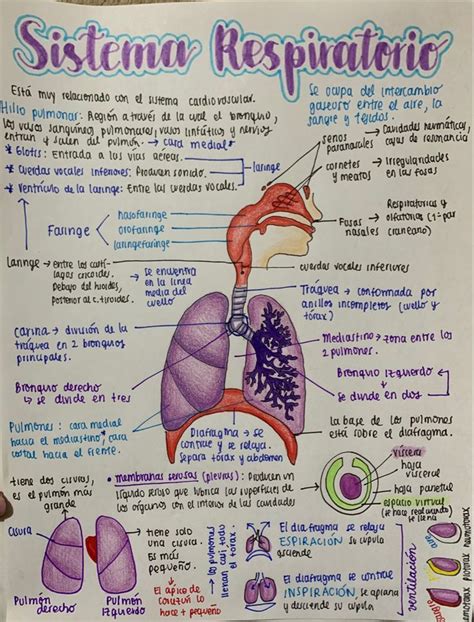 Sistema Respiratorio
Está muy relacionado con el sistema cardiovascular.
Hilio pulmonar: Región a través de la cual el bronquio,
los vasos sanguíneos pulmonares, vasos linfáticos y nervios
entran y salen del pulmón. → cara medial
* Glotis: Entrada a las vías aéreas.
* Cuerdas vocales inferores: Producen sonido.
* Ventrículo de la laringe: Entre las cuerdas vocales.
laringe
Se ocupa del intercambio
gaseoso entre el aire, la
sangre y tejidos.
senos
paranasales
→ Cavidades neumáticas,
cajas de resonancia
cornetes
y meatos
→ Irregularidades
en las fosas
Faringe
nasofaringe
orofaringe
laringofaringe
Fosas
nasales
→ Respiratorias y
olfatorias (1er par
craneano)
Laringe → entre los cartí-
lagos cricoides.
Debajo del hioides,
Posterior al c. tiroides.
→ Se encuentra
en la línea
media del
cuello
cuerdas vocales inferiores
Traquea → conformada por
anillos incompletos (cuello y
tórax)
Carina → división de la
tráquea en 2 bronquios
principales.
Mediastino → zona entre los
2 pulmones.
Bronquio derecho
↳ se divide en tres
Bronquio izquierdo
↳ se divide en dos
Pulmones: cara medial
hacia el mediastino, cara
costal hacia el frente.
Diafragma → se
contrae y se relaja.
Separa tórax y abdomen
La base de los pulmones
está sobre el diafragma.
tiene dos cisuras,
es el pulmón más
grande
• membranas serosas (pleuras): Producen un
líquido seroso que lubrica las superficies de
los órganos con el interior de las cavidades
víscera
hoja
visceral
hoja parietal
espacio virtual
se llena
cisura
→ tiene solo
una cisura.
Es más
pequeño.
→ El ápice de
corazón lo
hace + pequeño
Pulmón
derecho
Pulmón
Izquierdo
los pulmones
llenan casi todo
el tórax.
El diafragma se relaja
ESPIRACIÓN su cúpula
asciende
El diafragma se contrae
INSPIRACIÓN, se aplana
y desciende su cúpula
ventilación
aire